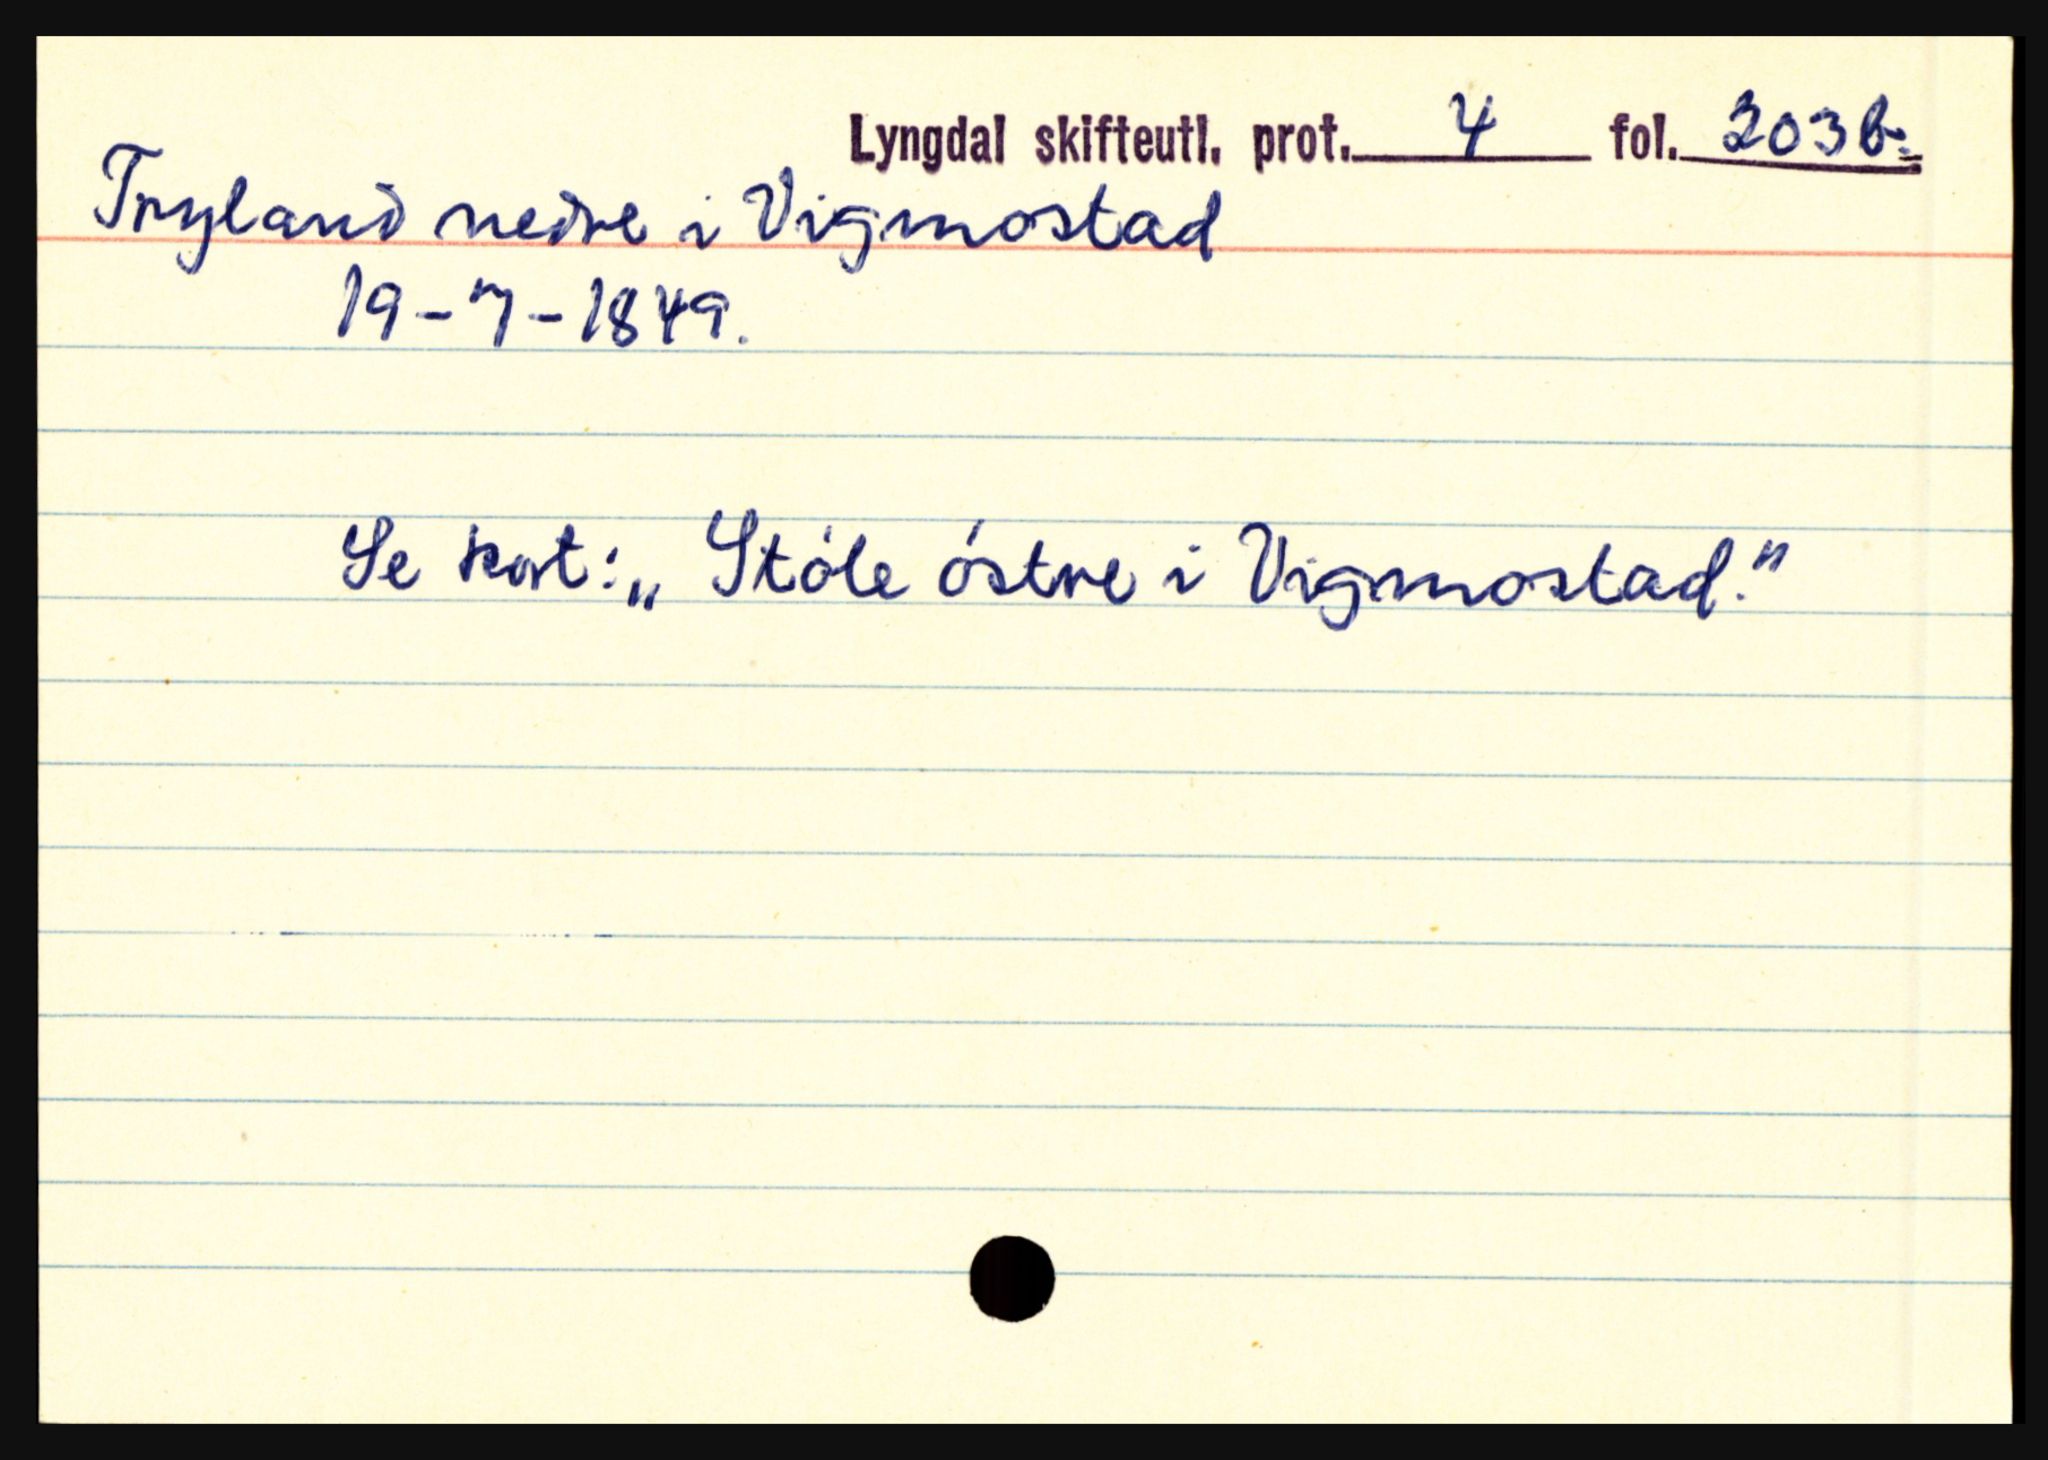 Lyngdal skifteutl. prot. 4 fol. 203b.
Tryland nedre i Vigmostad
19-7-1849.
Se kort: „Støle østre i Vigmostad."